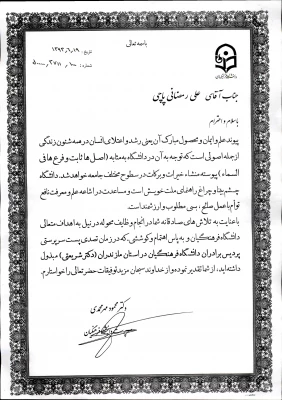 باسمه تعالی
تاریخ: ۱۳۹۳/۶/۱۹
شماره: ۵۰۰۰/۳۷۱۱/۱۰۰
دانشگاه فرهنگیان
جناب آقای علی رمضانی پاچی
با سلام و احترام
پیوند علم و ایمان و محصول مبارک آن یعنی رشد و اعتلای انسان در همه شئون زندگی
از جمله اصولی است که توجه به آن در دانشگاه به مثابه (اصلها ثابت و فرعها فی
السماء) پیوسته منشاء خیرات و برکات در سطوح مختلف جامعه خواهد شد. دانشگاه
چشم بینا و چراغ راهنمای ملت خویش است و مساعدت در اشاعه علم و معرفت نافع
توأم با عمل صالح، بسی مطلوب و ارزشمند است.
با عنایت به تلاش های صادقانه شما در انجام وظایف محوله در نیل به اهداف متعالی
دانشگاه فرهنگیان و به پاس اهتمام و کوششی، که در زمان تصدی پست سرپرستی
پردیس برادران دانشگاه فرهنگیان در استان مازندران (دکتر شریعتی) مبذول
داشته اید، از شما تقدیر نموده و از خداوند سبحان مزید توفیقات حضرتعالی را خواستارم.
دکتر محمود مهرمحمدی
سرپرست دانشگاه فرهنگیان